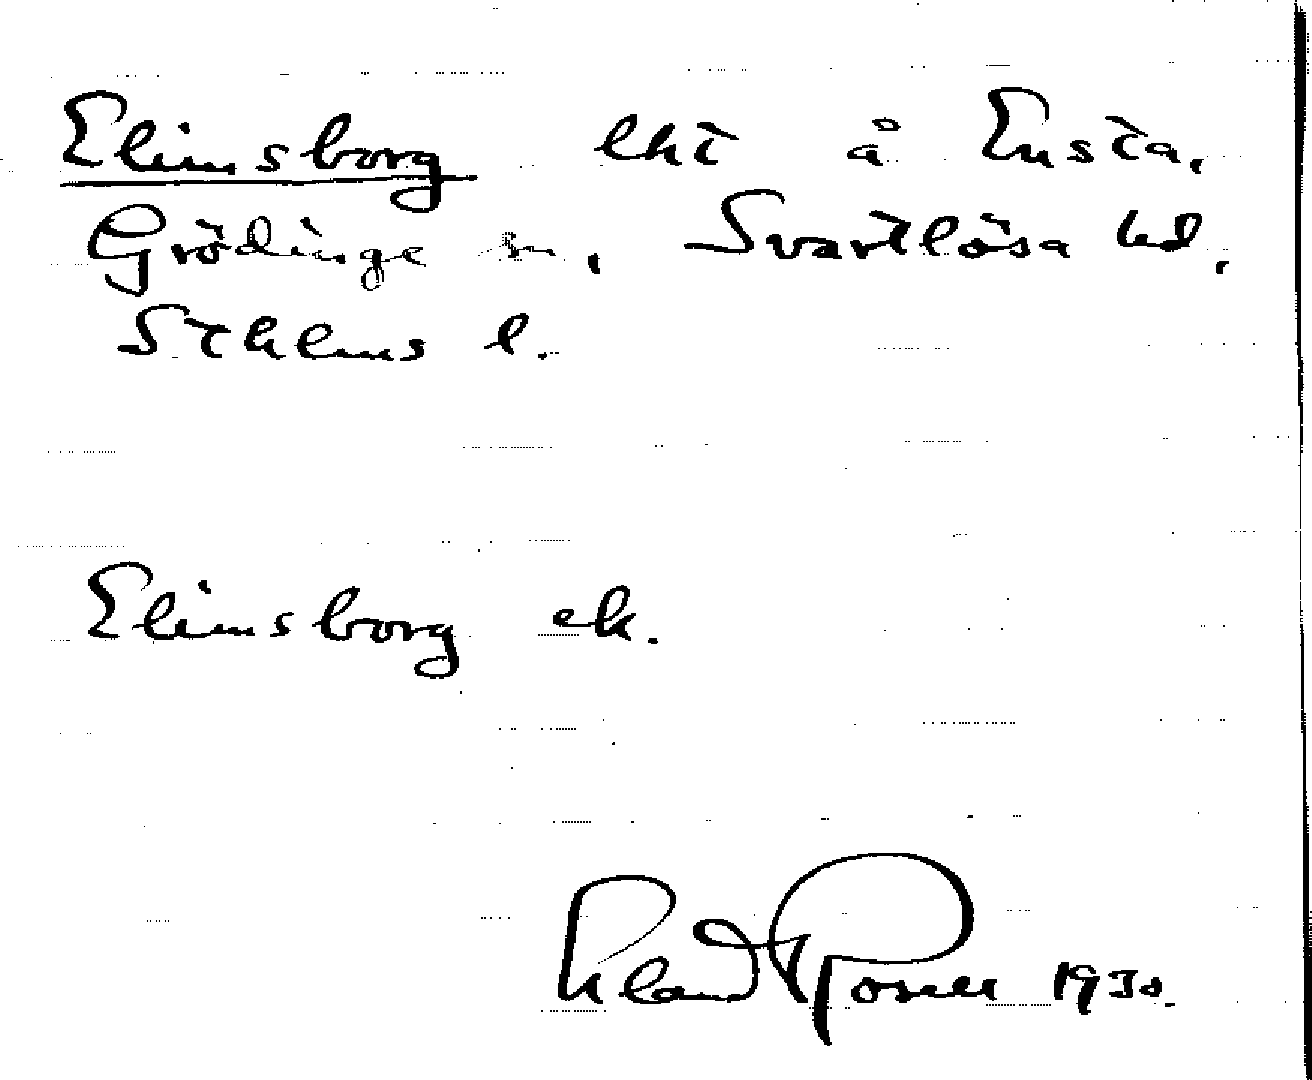 Elimsborg lht å Ensta,
Grödinge sn, Svartlösa hd,
Sthlms l.
Elimsborg ek.
Rosell 1930.